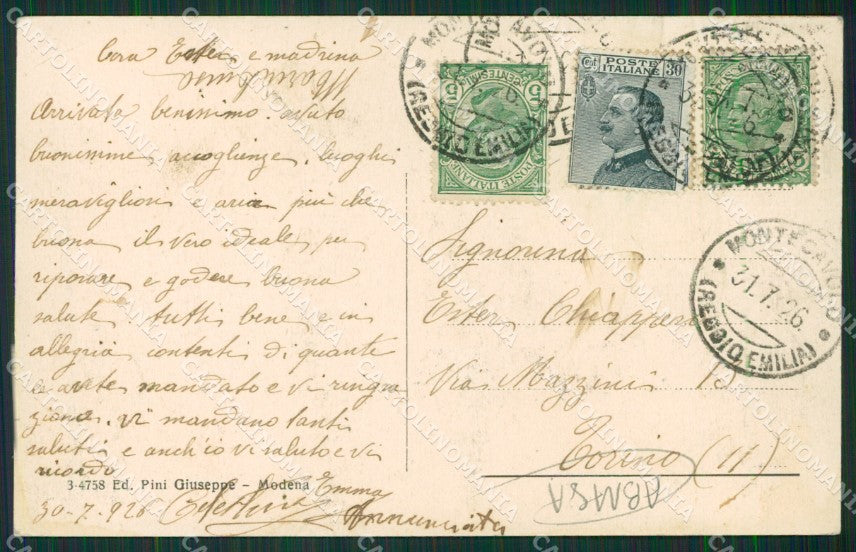 Cara Ester e madrina
Arrivata benissimo. avuto
buonissime accoglienze. luoghi
meravigliosi e aria più che
buona il vero ideale per
riposare e godere buona
salute tutti bene e in
allegria contenti di quante
avete mandato e vi ringra
ziano. vi mandano tanti
saluti e anch'io vi saluto e vi
ricordo
3-4758 Ed. Pini Giuseppe - Modena
30-7-926 Celestina Emma
Annunciata
POSTE ITALIANE
CENTESIMI 5
POSTE
ITALIANE
Cent 30
MONTECAVOLO
(REGGIO EMILIA)
MONTECAVOLO
31.7.26
(REGGIO EMILIA)
Signorina
Ester
Via Mazzini
Torino (11)
ABMSA
CARTOLINOMANIA